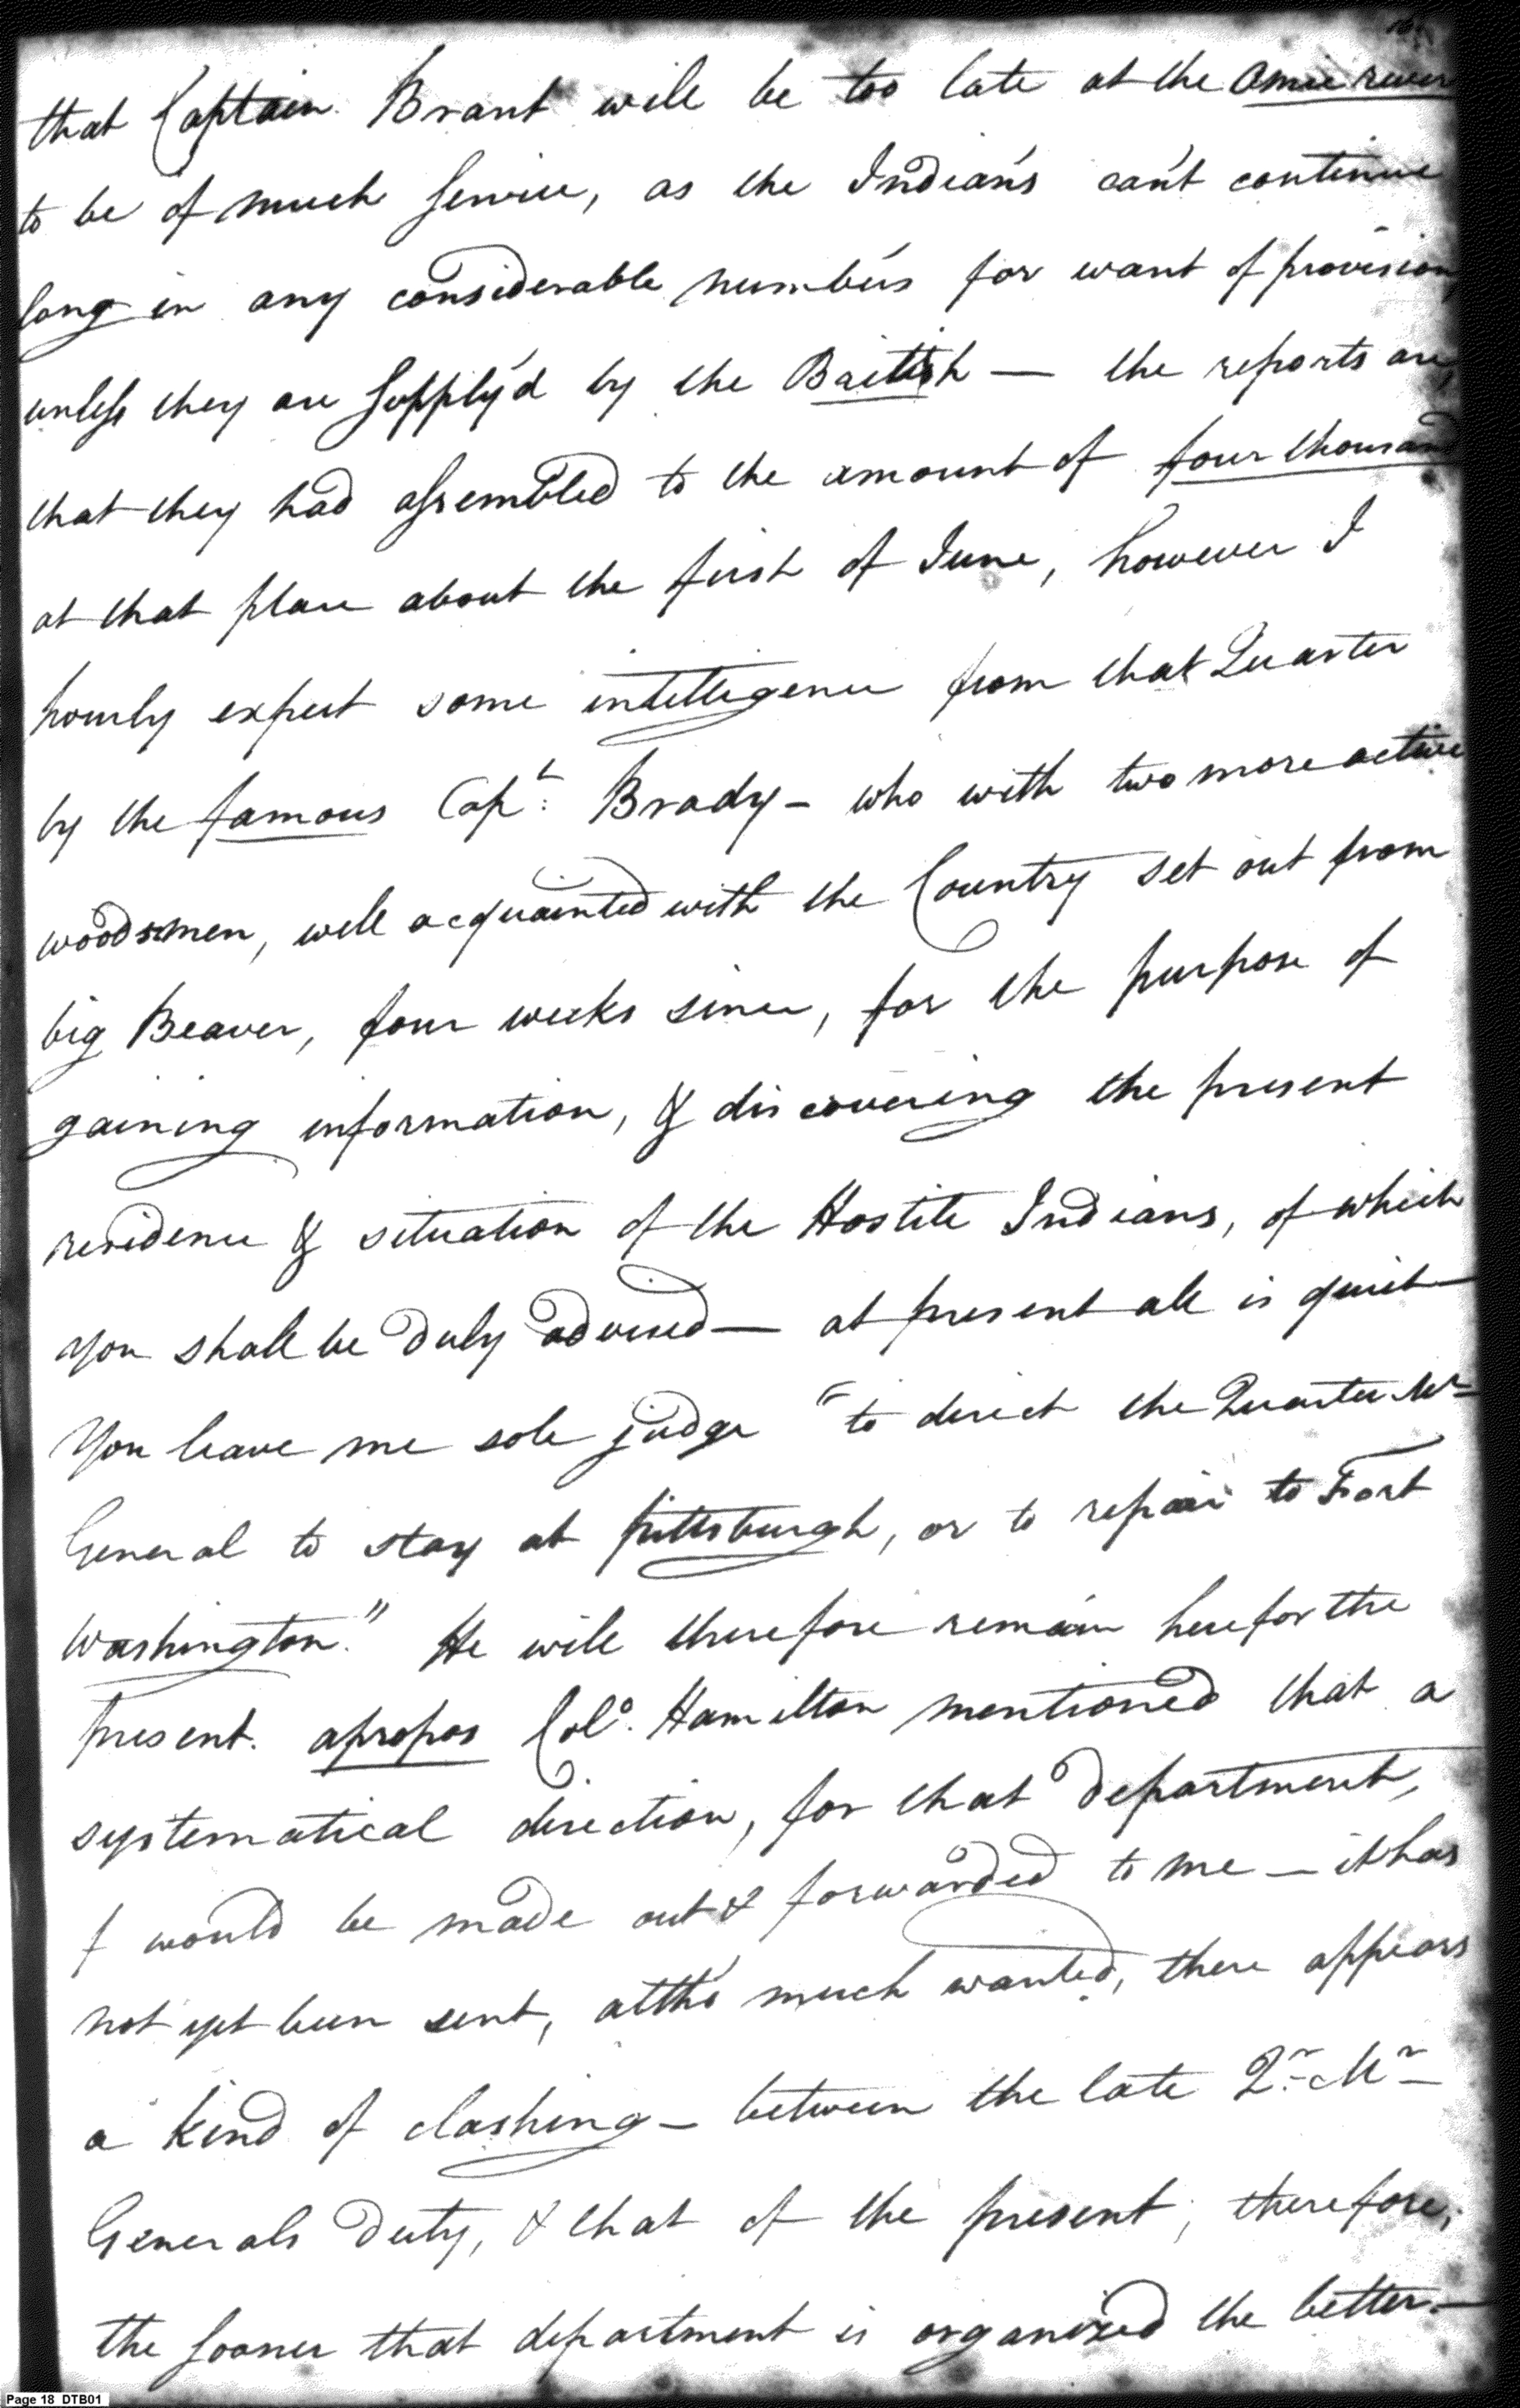 that Captain Brant will be too late at the Omie river
to be of much service, as the Indian's can't continue
long in any considerable number's for want of provision
unless they are supply'd by the British — the reports are,
that they had assembled to the amount of four thousand
at that place about the first of June, however I
hourly expect some intelligence from that Quarter
by the famous Capt: Brady — who with two more active
woodsmen, well acquainted with the Country set out from
big Beaver, four weeks since, for the purpose of
gaining information, & discovering the present
residence & situation of the Hostile Indians, of which
you shall be duly advised — at present all is quiet —
You leave me sole judge "to direct the Quarter Mr
General to stay at pittsburgh, or to repair to Fort
Washington." He will therefore remain here for the
present. apropos Colo. Hamilton mentioned that a
systematical direction, for that department,
would be made out & forwarded to me — it has
not yet been sent, altho' much wanted, there appears
a kind of clashing — between the late Qr. Mr
Generals Duty, & that of the present, therefore,
the sooner that department is organized the better —
Page 18 DTB01